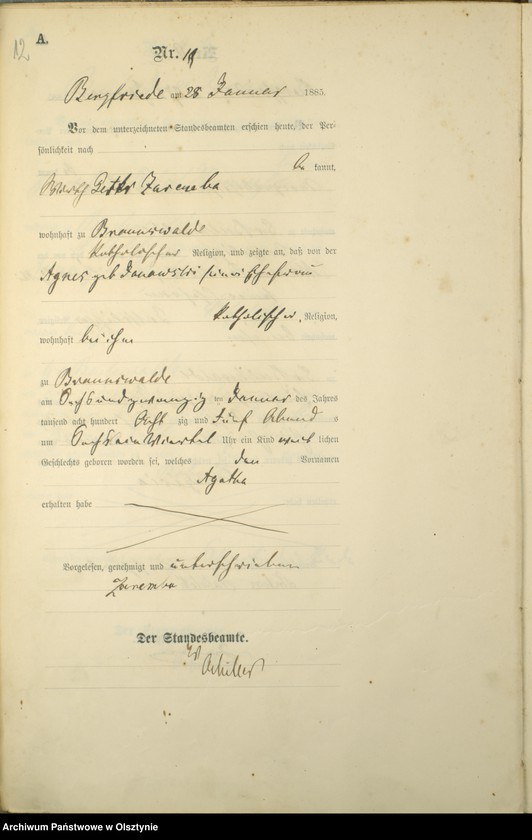 12
A.
Nr. 11
Bergfriede am 28 Januar 1885.
Vor dem unterzeichneten Standesbeamten erschien heute, der Per-
sönlichkeit nach
kannt,
Zaremba
wohnhaft zu Braunswalde
Katholischer Religion, und zeigte an, daß von der
Agnes geb Ehefrau
Katholischer Religion,
wohnhaft bei ihm
zu Braunswalde
am Sechsundzwanzig ten Januar des Jahres
tausend acht hundert Acht zig und fünf Abend s
um Sechs ein Viertel Uhr ein Kind weib lichen
Geschlechts geboren worden sei, welches den Vornamen
Agatha
erhalten habe
Vorgelesen, genehmigt und unterschrieben
Zaremba
Der Standesbeamte.
Archiwum Państwowe w Olsztynie